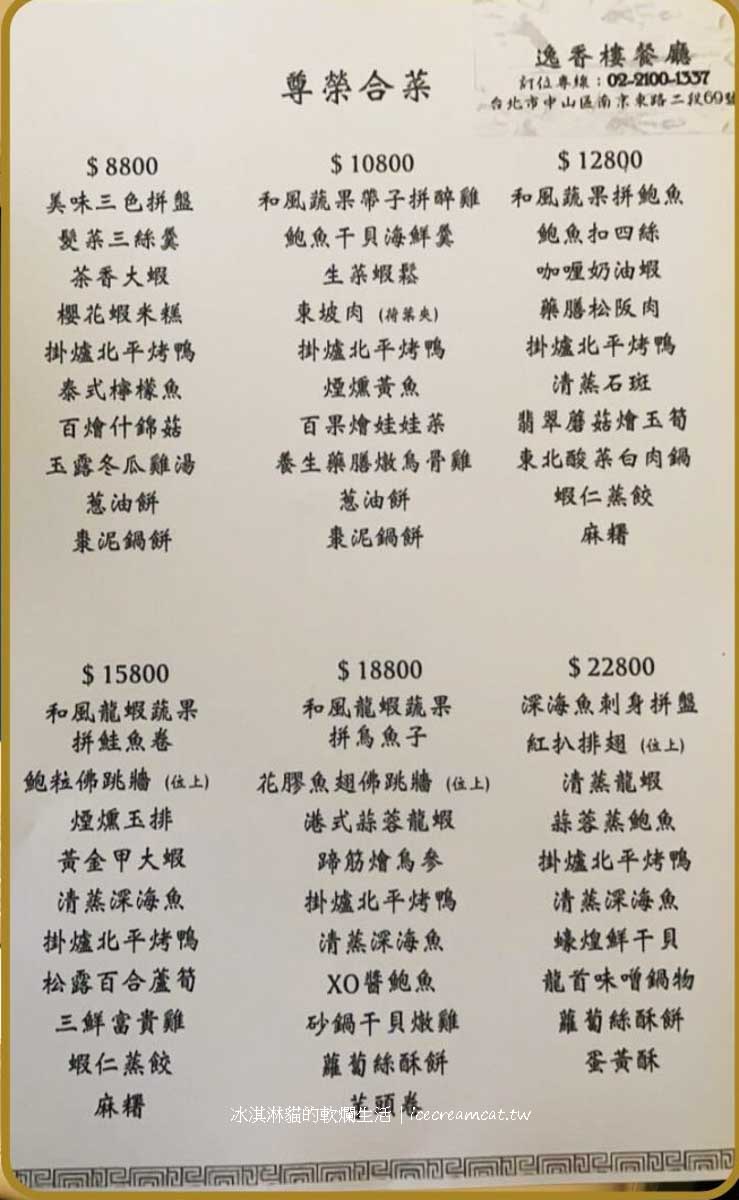 逸香樓餐廳
訂位專線：02-2100-1337
台北市中山區南京東路二段69號
尊榮合菜
$ 8800
美味三色拼盤
髮菜三絲羹
茶香大蝦
櫻花蝦米糕
掛爐北平烤鴨
泰式檸檬魚
百燴什錦菇
玉露冬瓜雞湯
蔥油餅
棗泥鍋餅
$ 10800
和風蔬果帶子拼醉雞
鮑魚干貝海鮮羹
生菜蝦鬆
東坡肉 (荷葉夾)
掛爐北平烤鴨
煙燻黃魚
百果燴娃娃菜
養生藥膳燉烏骨雞
蔥油餅
棗泥鍋餅
$ 12800
和風蔬果拼鮑魚
鮑魚扣四絲
咖喱奶油蝦
藥膳松阪肉
掛爐北平烤鴨
清蒸石斑
翡翠蘑菇燴玉筍
東北酸菜白肉鍋
蝦仁蒸餃
麻糬
$ 15800
和風龍蝦蔬果
拼鮭魚卷
鮑粒佛跳牆 (位上)
煙燻玉排
黃金甲大蝦
清蒸深海魚
掛爐北平烤鴨
松露百合蘆筍
三鮮富貴雞
蝦仁蒸餃
麻糬
$ 18800
和風龍蝦蔬果
拼烏魚子
花膠魚翅佛跳牆 (位上)
港式蒜蓉龍蝦
蹄筋燴烏參
掛爐北平烤鴨
清蒸深海魚
XO醬鮑魚
砂鍋干貝燉雞
蘿蔔絲酥餅
芋頭卷
$ 22800
深海魚刺身拼盤
紅扒排翅 (位上)
清蒸龍蝦
蒜蓉蒸鮑魚
掛爐北平烤鴨
清蒸深海魚
蠔煌鮮干貝
龍首味噌鍋物
蘿蔔絲酥餅
蛋黃酥
冰淇淋貓的軟爛生活 | icecreamcat.tw